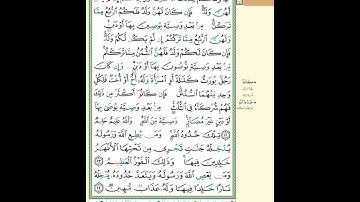 لَّهُنَّ وَلَدٌ فَإِن كَانَ لَهُنَّ وَلَدٌ فَلَكُمُ ٱلرُّبُعُ مِمَّا
تَرَكْنَ مِنۢ بَعْدِ وَصِيَّةٍ يُوصِينَ بِهَآ أَوْ دَيْنٍ
وَلَهُنَّ ٱلرُّبُعُ مِمَّا تَرَكْتُمْ إِن لَّمْ يَكُن لَّكُمْ وَلَدٌ
فَإِن كَانَ لَكُمْ وَلَدٌ فَلَهُنَّ ٱلثُّمُنُ مِمَّا تَرَكْتُم
مِّنۢ بَعْدِ وَصِيَّةٍ تُوصُونَ بِهَآ أَوْ دَيْنٍ وَإِن كَانَ
رَجُلٌ يُورَثُ كَلَٰلَةً أَوِ ٱمْرَأَةٌ وَلَهُۥٓ أَخٌ أَوْ أُخْتٌ فَلِكُلِّ
وَٰحِدٍ مِّنْهُمَا ٱلسُّدُسُ فَإِن كَانُوٓا۟ أَكْثَرَ مِن ذَٰلِكَ
فَهُمْ شُرَكَآءُ فِى ٱلثُّلُثِ مِنۢ بَعْدِ وَصِيَّةٍ يُوصَىٰ بِهَآ
أَوْ دَيْنٍ غَيْرَ مُضَآرٍّ وَصِيَّةً مِّنَ ٱللَّهِ وَٱللَّهُ عَلِيمٌ حَلِيمٌ
١٢ تِلْكَ حُدُودُ ٱللَّهِ وَمَن يُطِعِ ٱللَّهَ وَرَسُولَهُۥ
يُدْخِلْهُ جَنَّٰتٍ تَجْرِى مِن تَحْتِهَا ٱلْأَنْهَٰرُ
خَٰلِدِينَ فِيهَا وَذَٰلِكَ ٱلْفَوْزُ ٱلْعَظِيمُ ١٣
وَمَن يَعْصِ ٱللَّهَ وَرَسُولَهُۥ وَيَتَعَدَّ حُدُودَهُۥ يُدْخِلْهُ
نَارًا خَٰلِدًا فِيهَا وَلَهُۥ عَذَابٌ مُّهِينٌ ١٤